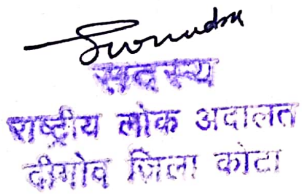 सदस्य
राष्ट्रीय लोक अदालत
दीगोव ज़िला कोटा